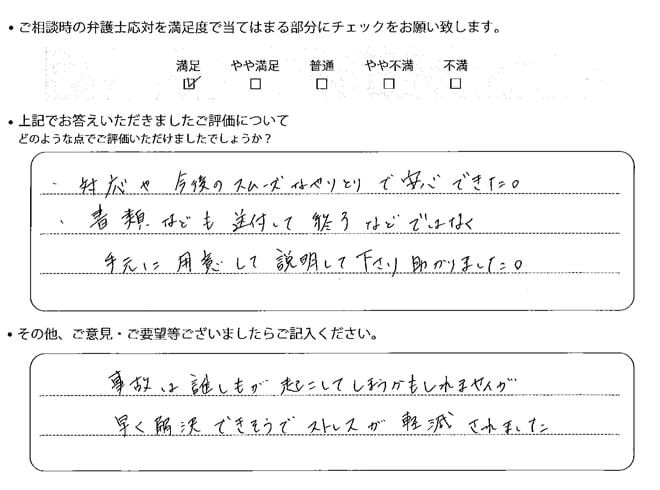 ・ご相談時の弁護士応対を満足度で当てはまる部分にチェックをお願い致します。
満足 やや満足 普通 やや不満 不満
☑ □ □ □ □
・上記でお答えいただきましたご評価について
どのような点でご評価いただけましたでしょうか？
・対応や今後のスムーズなやりとりで安心できた。
・書類なども送付して終うなどではなく
手元に用意して説明して下さり助かりました。
・その他、ご意見・ご要望等ございましたらご記入ください。
事故は誰しもが起こしてしまうかもしれませんが
早く解決できそうでストレスが軽減されました